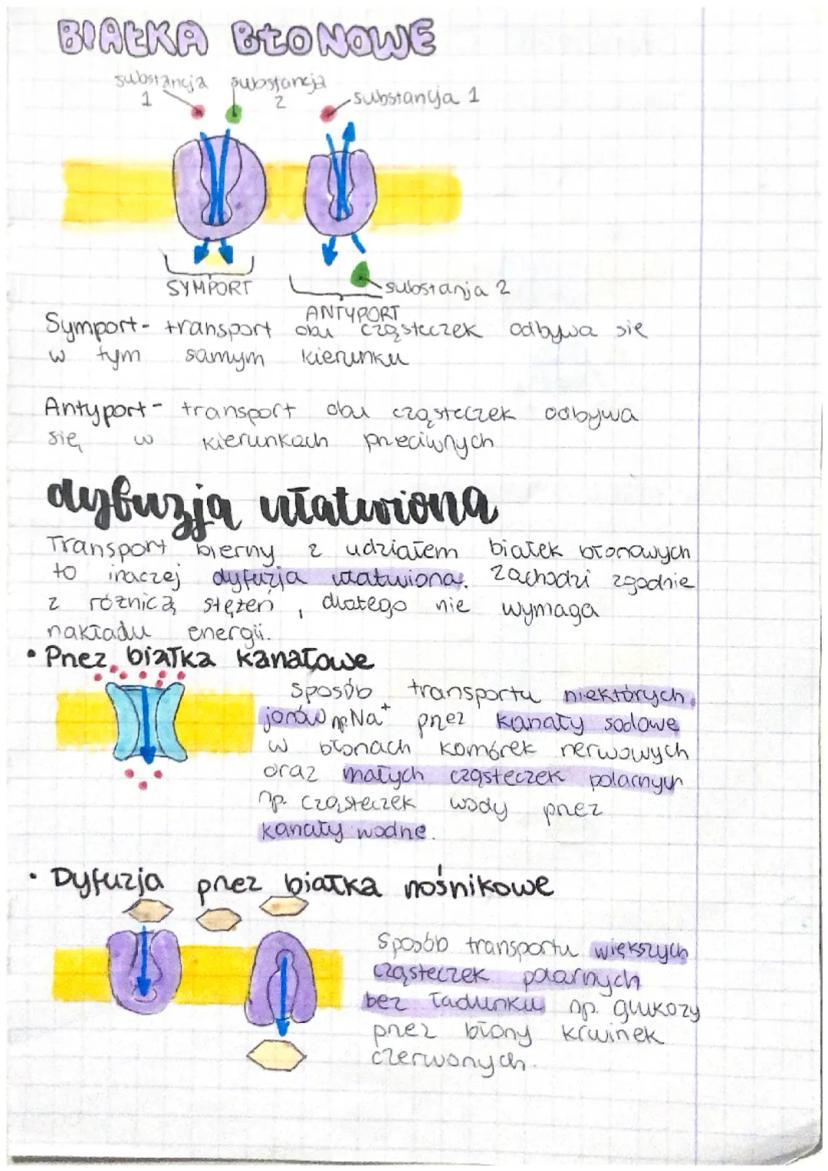 BIAŁKA BŁONOWE
substancja 1
substancja 2
substancja 1
SYMPORT
substanja 2
ANTYPORT
Symport- transport obu cząsteczek odbywa się
w tym samym kierunku
Antyport- transport obu cząsteczek odbywa
się w kierunkach przeciwnych
dyfuzja ułatwiona
Transport bierny z udziałem białek błonowych
to inaczej dyfuzja ułatwiona. Zachodzi zgodnie
z różnicą stężeń, dlatego nie wymaga
nakładu energii.
• Przez białka kanałowe
sposób transportu niektórych
jonów np Na⁺ przez kanały sodowe
w błonach komórek nerwowych
oraz małych cząsteczek polarnych
np. cząsteczek wody przez
kanały wodne.
• Dyfuzja przez białka nośnikowe
Sposób transportu większych
cząsteczek polarnych
bez ładunku np. glukozy
przez błony krwinek
czerwonych.